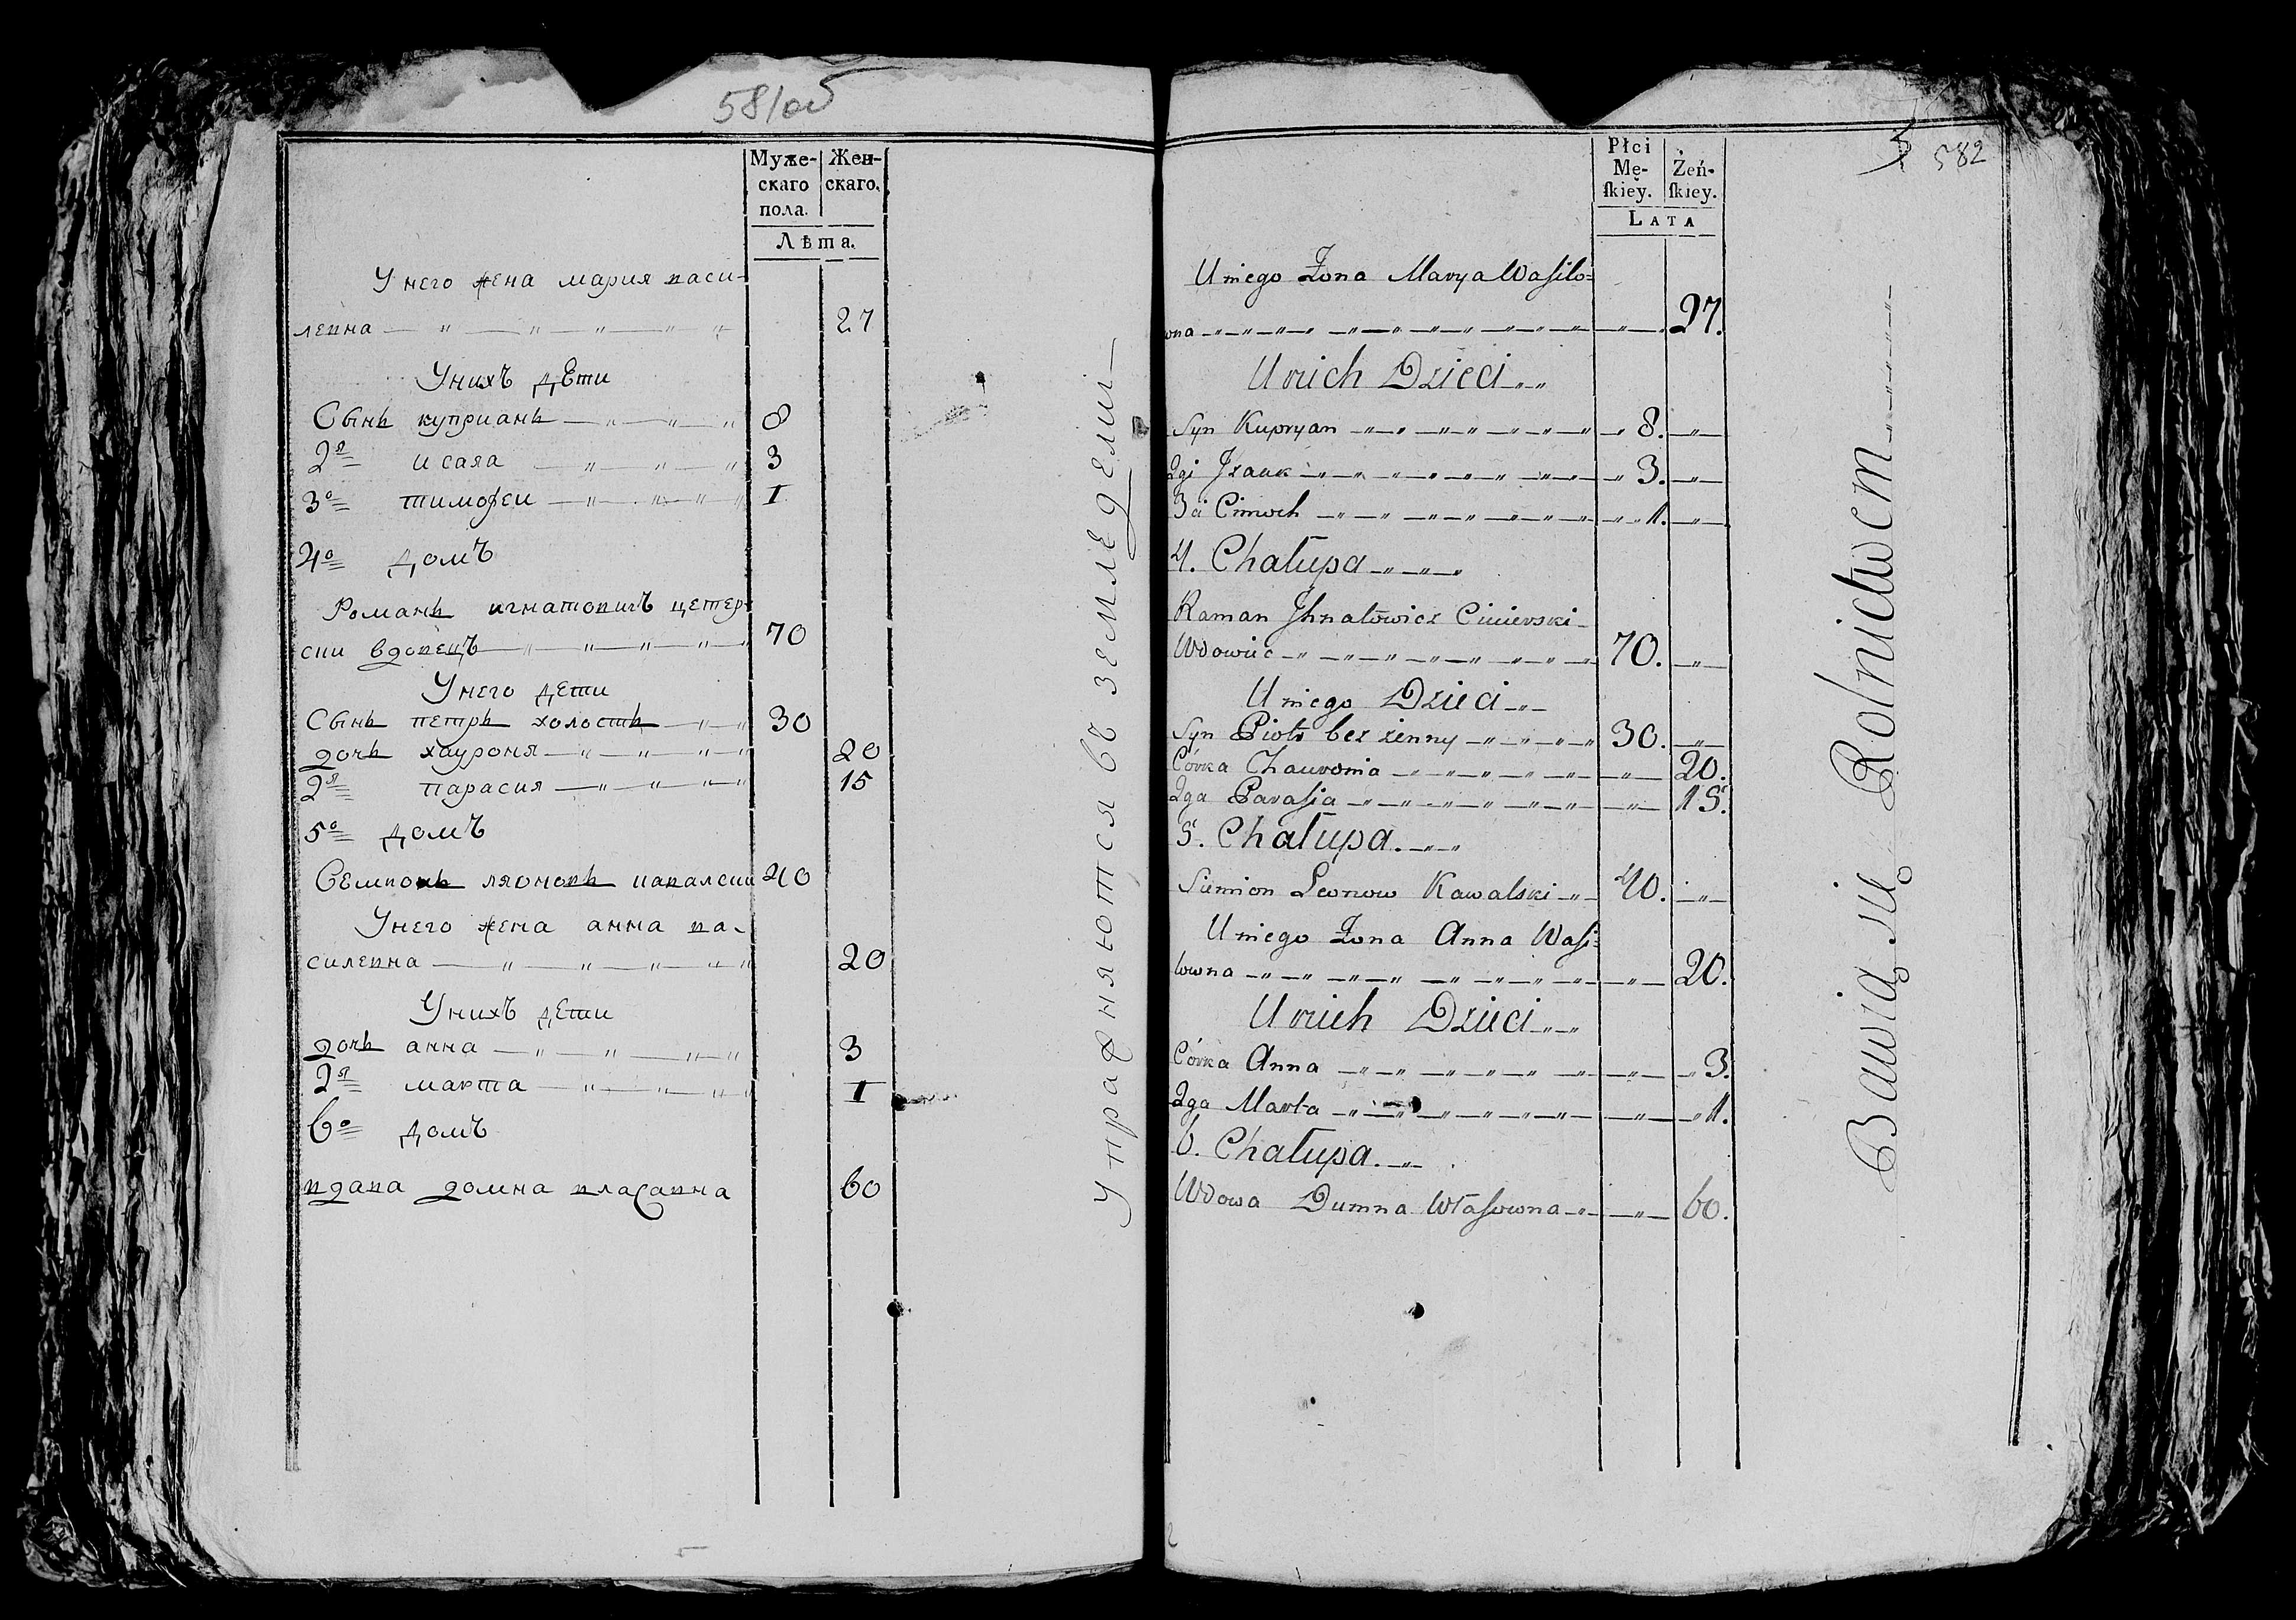 581об
Муже-
скаго
пола.
Жен-
скаго.
Лѣта.
У него жена мария васи-
левна 27
У нихъ дети
Сынъ куприанъ 8
2я исаяа 3
3о тимофеи I
4о домъ
Романъ игнатовичъ цетер-
ски вдовецъ 70
У него дети
Сынъ петръ холостъ 30
дочь хаурония 20
2я парасия 15
5о домъ
Семионъ ляоновъ кавалски 40
У него жена анна ва-
силевна 20
У нихъ дети
дочь анна 3
2я марта I
6о домъ
вдава домна власавна 60
Упражняются въ земледелии
582
Płci
Mę-
skiey.
Żeń-
skiey.
LATA
U niego Żona Marya Wasilo=
wna 27.
U nich Dzieci
Syn Kupryan 8.
2gi Izaak 3.
3ci Cimoch 1.
4. Chałupa
Raman Ihnatowicz
Wdowiec 70.
U niego Dzieci
Syn Piotr bez zenny 30.
Córka Chauronia 20.
2ga Parasia 15.
5. Chałupa.
Siemion Leonow Kawalski 40.
U niego Żona Anna Wasi=
lowna 20.
U nich Dzieci
Córka Anna 3.
2ga Marta 1.
6. Chałupa.
Wdowa Dumna Własowna 60.
Bawią się Rolnictwem